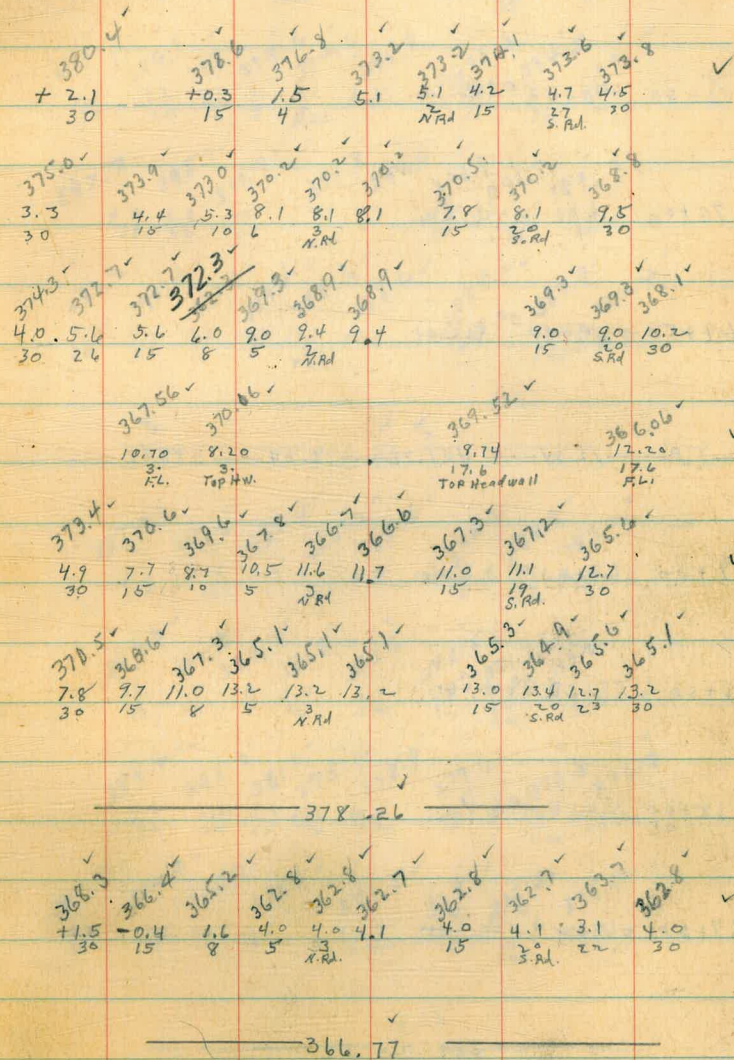 380.4 378.6 376.8 373.2 373.2 374.1 373.6 373.8
+ 2.1 +0.3 1.5 5.1 5.1 4.2 4.7 4.5
30 15 4 2 15 27 30
N Rd S. Rd.
375.0 373.9 373.0 370.2 370.2 370.2 370.5 370.2 368.8
3.3 4.4 5.3 8.1 8.1 8.1 7.8 8.1 9.5
30 15 10 6 3 15 20 30
N.Rd S.Rd
374.3 372.7 372.7 372.3 369.3 368.9 368.9 369.3 369.3 368.1
4.0 5.6 5.6 6.0 9.0 9.4 9.4 9.0 9.0 10.2
30 26 15 8 5 2 15 20 30
N.Rd S.Rd
367.56 370.06 369.52 366.06
10.70 8.20 8.74 12.20
3. 3. 17.6 17.6
F.L. Top H.W. Top Headwall F.L.
373.4 370.6 369.6 367.8 366.7 366.6 367.3 367.2 365.6
4.9 7.7 8.7 10.5 11.6 11.7 11.0 11.1 12.7
30 15 10 5 3 15 19 30
N Rd S.Rd.
370.5 368.6 367.3 365.1 365.1 365.1 365.3 364.9 365.6 365.1
7.8 9.7 11.0 13.2 13.2 13.2 13.0 13.4 12.7 13.2
30 15 8 5 3 15 20 23 30
N.Rd S.Rd
378.26
368.3 366.4 365.2 362.8 362.8 362.7 362.8 362.7 363.7 362.8
+1.5 -0.4 1.6 4.0 4.0 4.1 4.0 4.1 3.1 4.0
30 15 8 5 3 15 20 22 30
N.Rd. S.Rd.
366.77